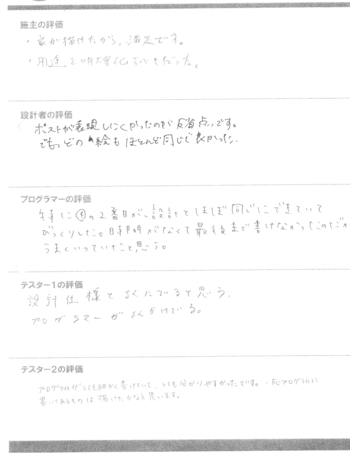 施主の評価
・家が描けたから、満足です。
・用途を明確化
設計者の評価
ポストが表現しにくかったのが反省点です。
でもどの絵もほとんど同じで良かった。
プログラマーの評価
特に④の2番目が設計とほぼ同じにできていて
びっくりした。時間がなくて最後まで書けなかった
うまくいっていたと思う。
テスター1の評価
設計仕様とよくにてると思う。
プログラマーがよくかけてる。
テスター2の評価
プログラムがとても細かく書けていて、とても分かりやすかったです。一応プログラムに
書いてあるものは描けたかなと思います。